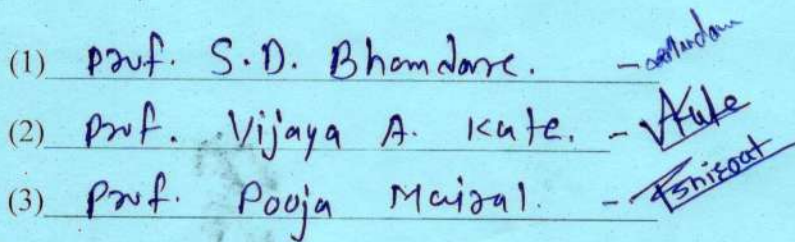 (1) Prof. S.D. Bhamdare. -
(2) Prof. Vijaya A. Kate. - VAKate
(3) Prof. Pooja Mairal. -